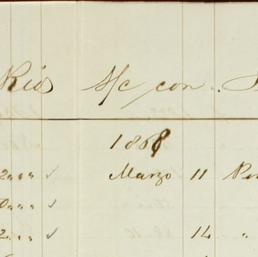 Rio S/c con.
1868
2 " " " ✓ Marzo 11
0 " " " ✓
2 " " " ✓ 14 "